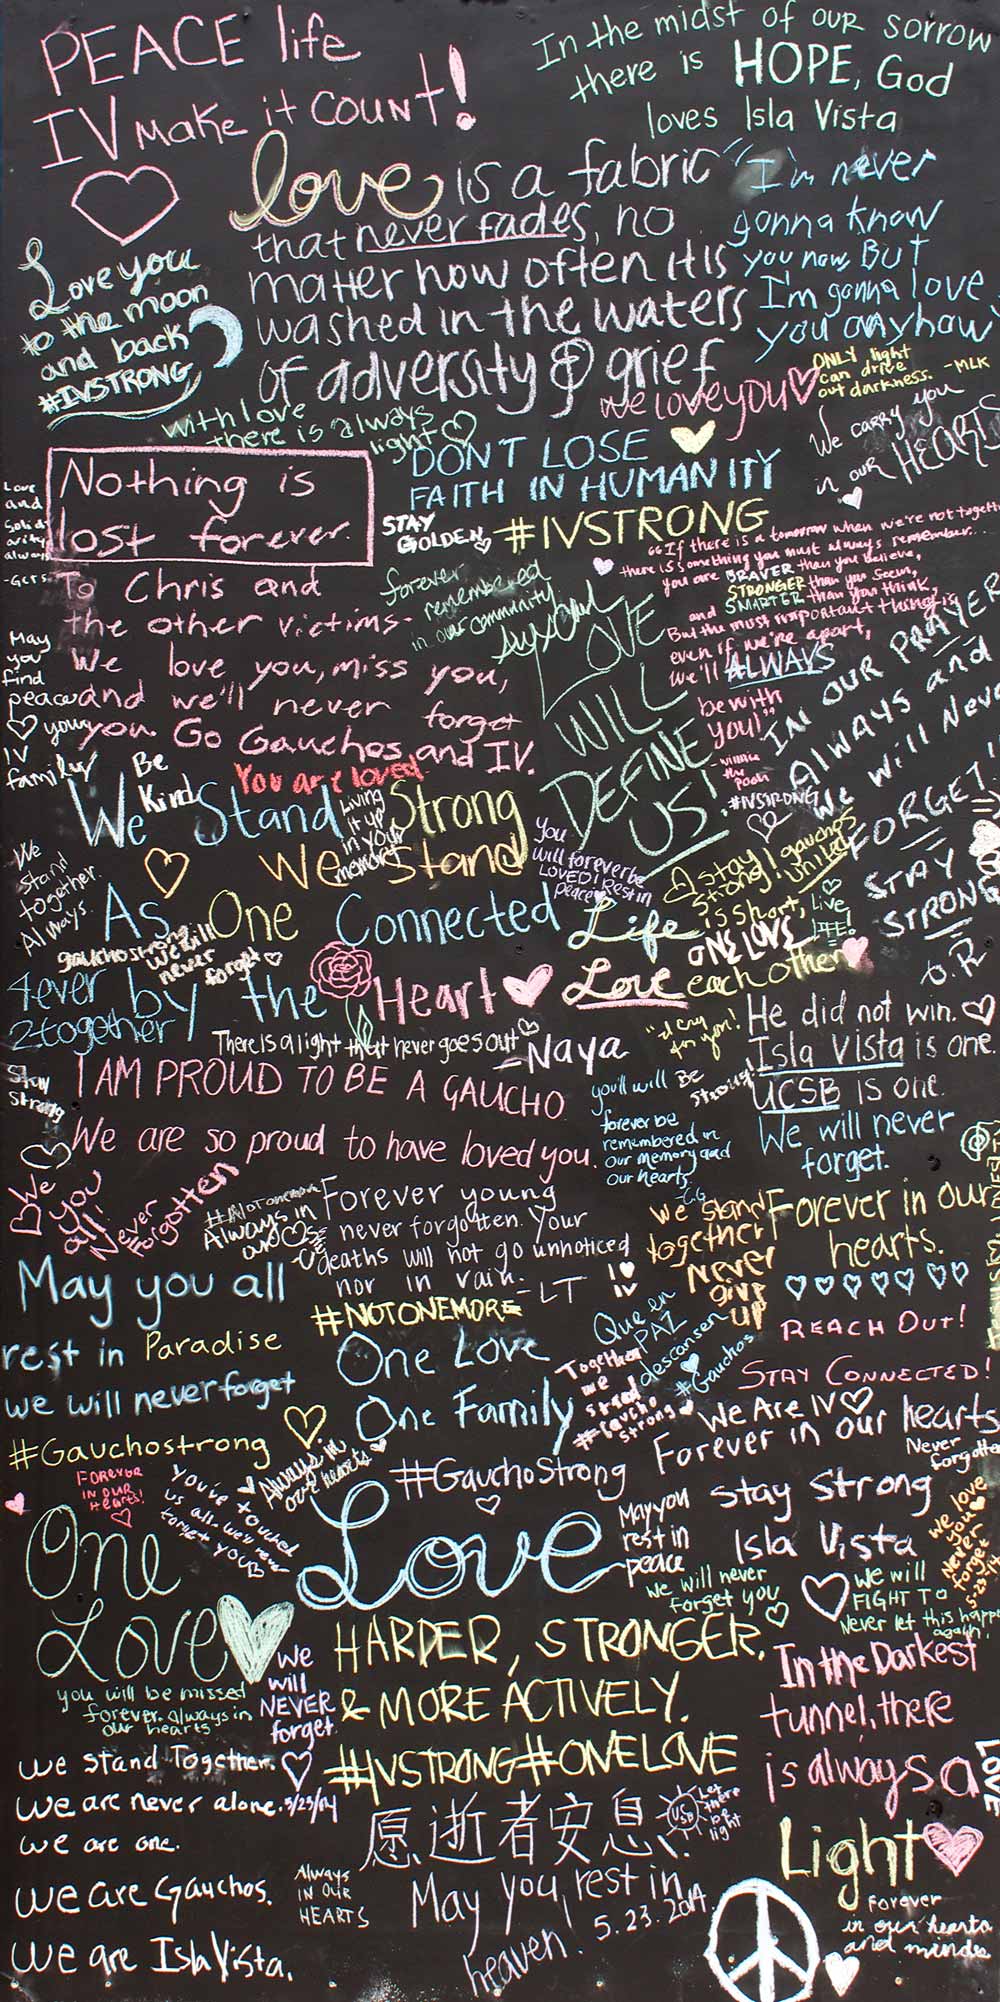 PEACE life
IV make it count!
In the midst of our sorrow
there is HOPE, God
loves Isla Vista
love is a fabric
that never fades, no
matter how often it is
washed in the waters
of adversity & grief
"I'm never
gonna know
you now, But
I'm gonna love
you anyhow"
Love you
to the moon
and back
#IVSTRONG
ONLY light
can drive
out darkness. -MLK
we love you
with love
there is always
light
We carry you
in our HEARTS
DON'T LOSE
FAITH IN HUMANITY
#IVSTRONG
STAY
GOLDEN
Nothing is
lost forever.
Love
and
Solid
arity
always
To Chris and
the other victims-
We love you, miss you,
and we'll never forget
you. Go Gauchos and IV.
forever
remembered
in our community
"If there is a tomorrow when we're not together...
there is something you must always remember...
you are BRAVER than you believe,
STRONGER than you seem,
and SMARTER than you think,
But the most important thing is
even if we're apart,
we'll ALWAYS
be with
you!"
-Winnie
the
Pooh
#IVSTRONG
LOVE
WILL
DEFINE
US!
IN OUR PRAYERS
ALWAYS and
We will Never
FORGET!
STAY
STRONG
D.R
May
you
find
peace
your
IV
family
Be
Kind
You are loved
We Stand Strong
Living
it up
in your
memory
We Stand
As One Connected
4ever by the Heart
2together
We
Stand
together.
Always.
gaucho strong
We will
never
forget
you
will forever be
LOVED! Rest in
peace
stay
strong! gauchos
united
Life is short,
Live
LIFE!
ONE LOVE
Love each other
There is a light that never goes out
-Naya
"I Cry
for you!
Be
Strong!
He did not win.
Isla Vista is one.
UCSB is one.
We will never
forget.
I AM PROUD TO BE A GAUCHO
Stay
Strong
We are so proud to have loved you.
you'll will
forever be
remembered in
our memory and
our hearts.
-CG
We
you
all!
Never
Forgotten
#Notonemore
Always in
our
Forever young
never forgotten. Your
deaths will not go unnoticed
nor in vain.
-LT
#NOTONEMORE
We stand
together
Never
give
up
Forever in our
hearts.
May you all
rest in Paradise
we will never forget
#Gauchostrong
I
IV
Que en
PAZ
descansen
#Gauchos
REACH OUT!
STAY CONNECTED!
One Love
One Family
#GauchoStrong
Together
we
stand
#Gaucho
Strong
We Are IV
Forever in our hearts
Never
forgotten
FOREVER
IN OUR
HEARTS!
You've touched
us all. We'll never
forget you
Always in
our hearts
One
Love
Love
May you
rest in
peace
Stay Strong
Isla Vista
We love
you
Never
forget
5-23-14
We will never
forget you
We will
FIGHT TO
Never let this happen
again!
HARDER, STRONGER,
& MORE ACTIVELY.
#IVSTRONG #ONELOVE
you will be missed
forever. Always in
our hearts
We
will
NEVER
forget.
In the Darkest
tunnel, there
is always a
Light
LOVE
we stand Together.
we are never alone. 5/23/14
we are one.
we are Gauchos.
we are Isla Vista.
愿逝者安息.
Let
there
be
light
Always
IN OUR
HEARTS
May you rest in
heaven. 5.23.2014
Forever
in our hearts
and minds.